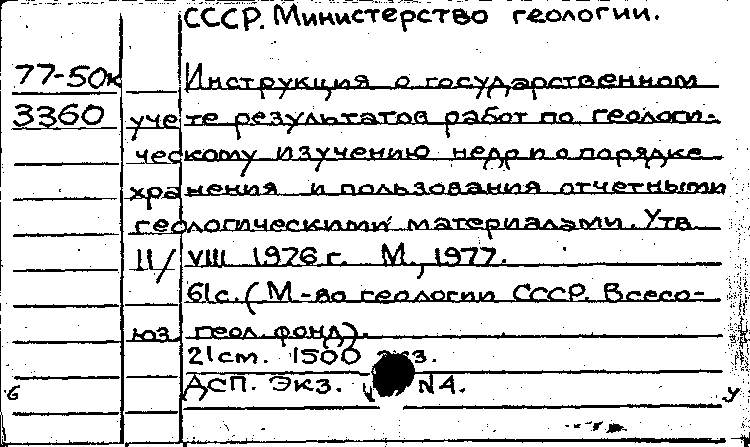 СССР. Министерство геологии.
77-50к Инструкция о государственном
3360 учете результатов работ по геологи-
ческому изучению недр и о порядке
хранения и пользования отчетными
геологическими материалами. Утв
11/VIII 1976 г. М., 1977.
61с. (М-во геологии СССР. Всесо-
юз. геол. фонд).
21см. 1500 экз.
ДСП. Экз. N4.
6 у